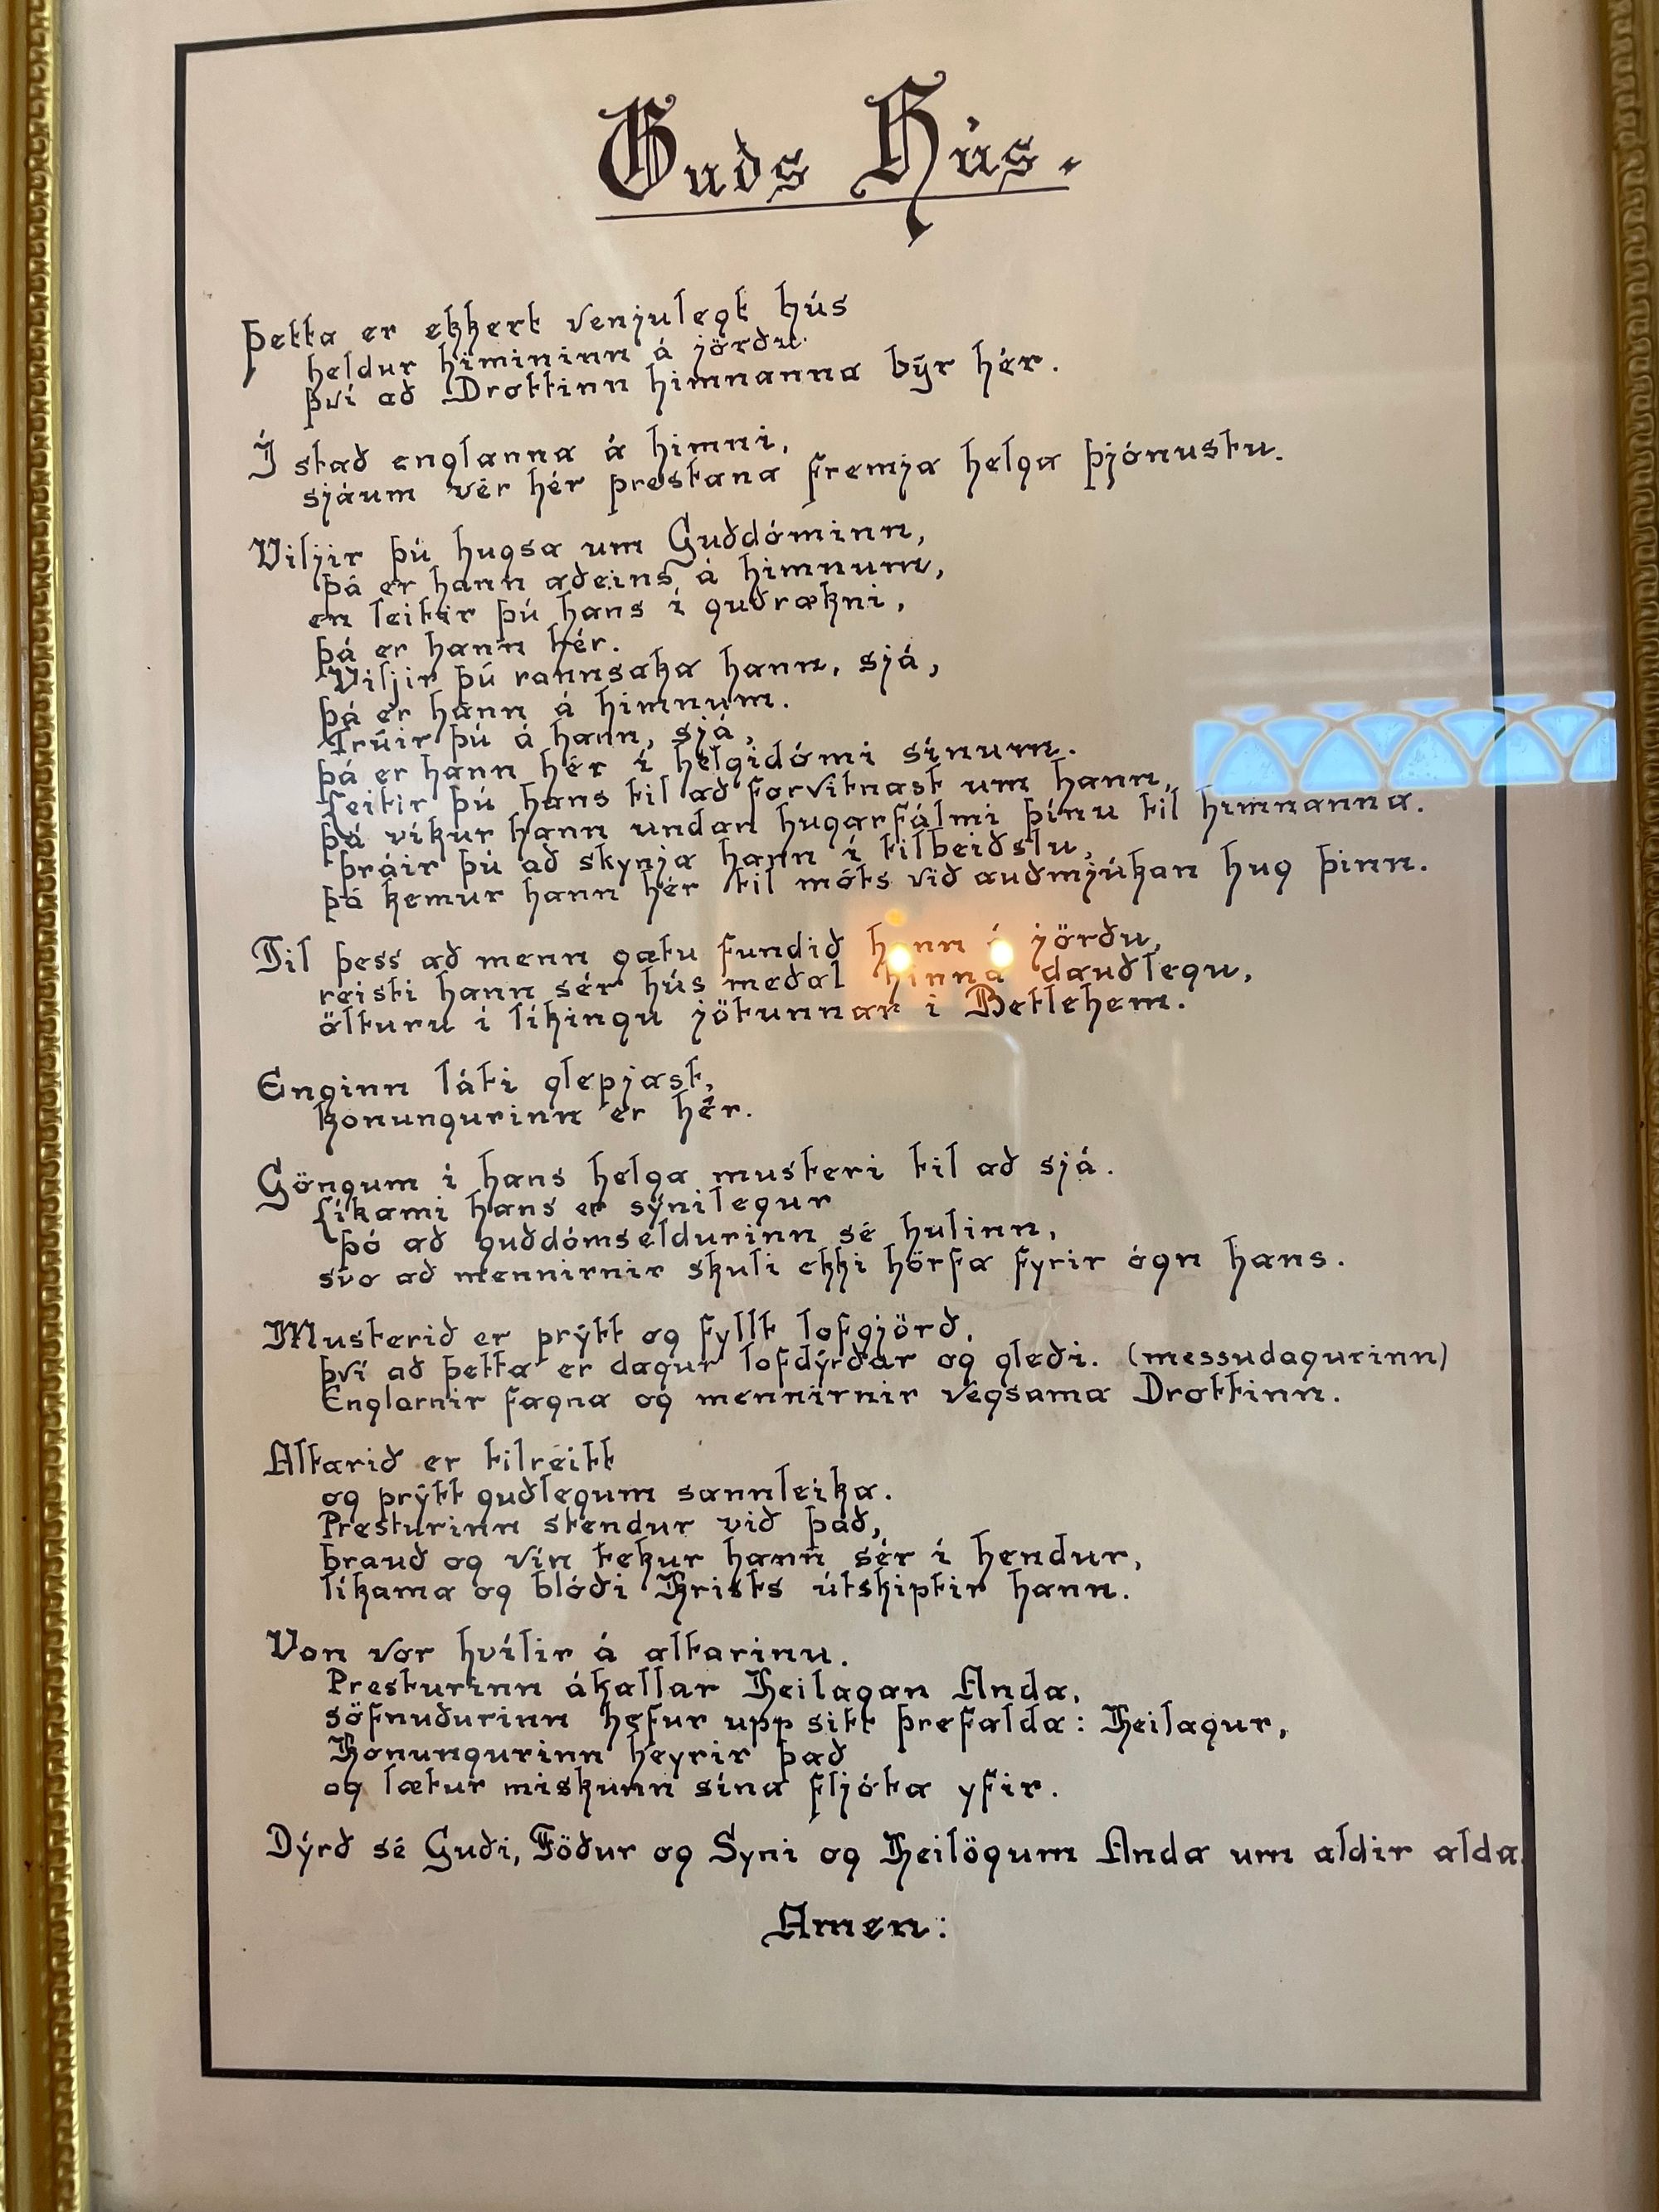 Guds Hús.
Þetta er ekkert venjulegt hús
heldur himininn á jörðu
því að Drottinn himnanna býr hér.
Í stað englanna á himni,
sjáum vér hér prestana fremja helga þjónustu.
Viljir þú hugsa um Guðdóminn,
þá er hann aðeins á himnum,
en leitir þú hans í guðrækni,
þá er hann hér.
Viljir þú rannsaka hann, sjá,
þá er hann á himnum.
Trúir þú á hann, sjá,
þá er hann hér í helgidómi sínum.
Leitir þú hans til að forvitnast um hann,
þá víkur hann undan hugarfálmi þínu til himnanna.
Þráir þú að skynja hann í tilbeiðslu,
þá kemur hann hér til móts við auðmjúkan hug þinn.
Til þess að menn gætu fundið hann á jörðu,
reisti hann sér hús meðal hinna dauðlegu,
ölturu í líkingu jötunnar í Betlehem.
Enginn láti glepjast,
konungurinn er hér.
Göngum í hans helga musteri til að sjá.
Líkami hans er sýnilegur
þó að guðdómseldurinn sé hulinn,
svo að mennirnir skuli ekki hörfa fyrir ógn hans.
Musterið er prýtt og fyllt lofgjörð,
því að þetta er dagur lofdýrðar og gleði. (messudagurinn)
Englarnir fagna og mennirnir vegsama Drottinn.
Altarið er tilreitt
og prýtt guðlegum sannleika.
Presturinn stendur við það,
brauð og vín tekur hann sér í hendur,
líkama og blóði Krists útskiptir hann.
Von vor hvílir á altarinu.
Presturinn ákallar Heilagan Anda,
söfnuðurinn hefur upp sitt þrefalda: Heilagur,
Konungurinn heyrir það
og lætur miskunn sína fljóta yfir.
Dýrð sé Guði, Föður og Syni og Heilögum Anda um aldir alda.
Amen: